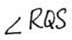 ∠RQS